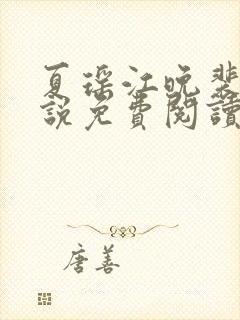 夏瑶江晚裴
說免費閱讀
唐善